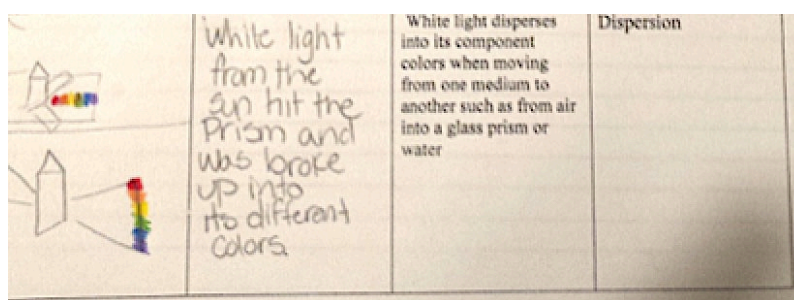 While light
from the
sun hit the
Prism and
was broke
up into
its different
colors.
White light disperses
into its component
colors when moving
from one medium to
another such as from air
into a glass prism or
water
Dispersion